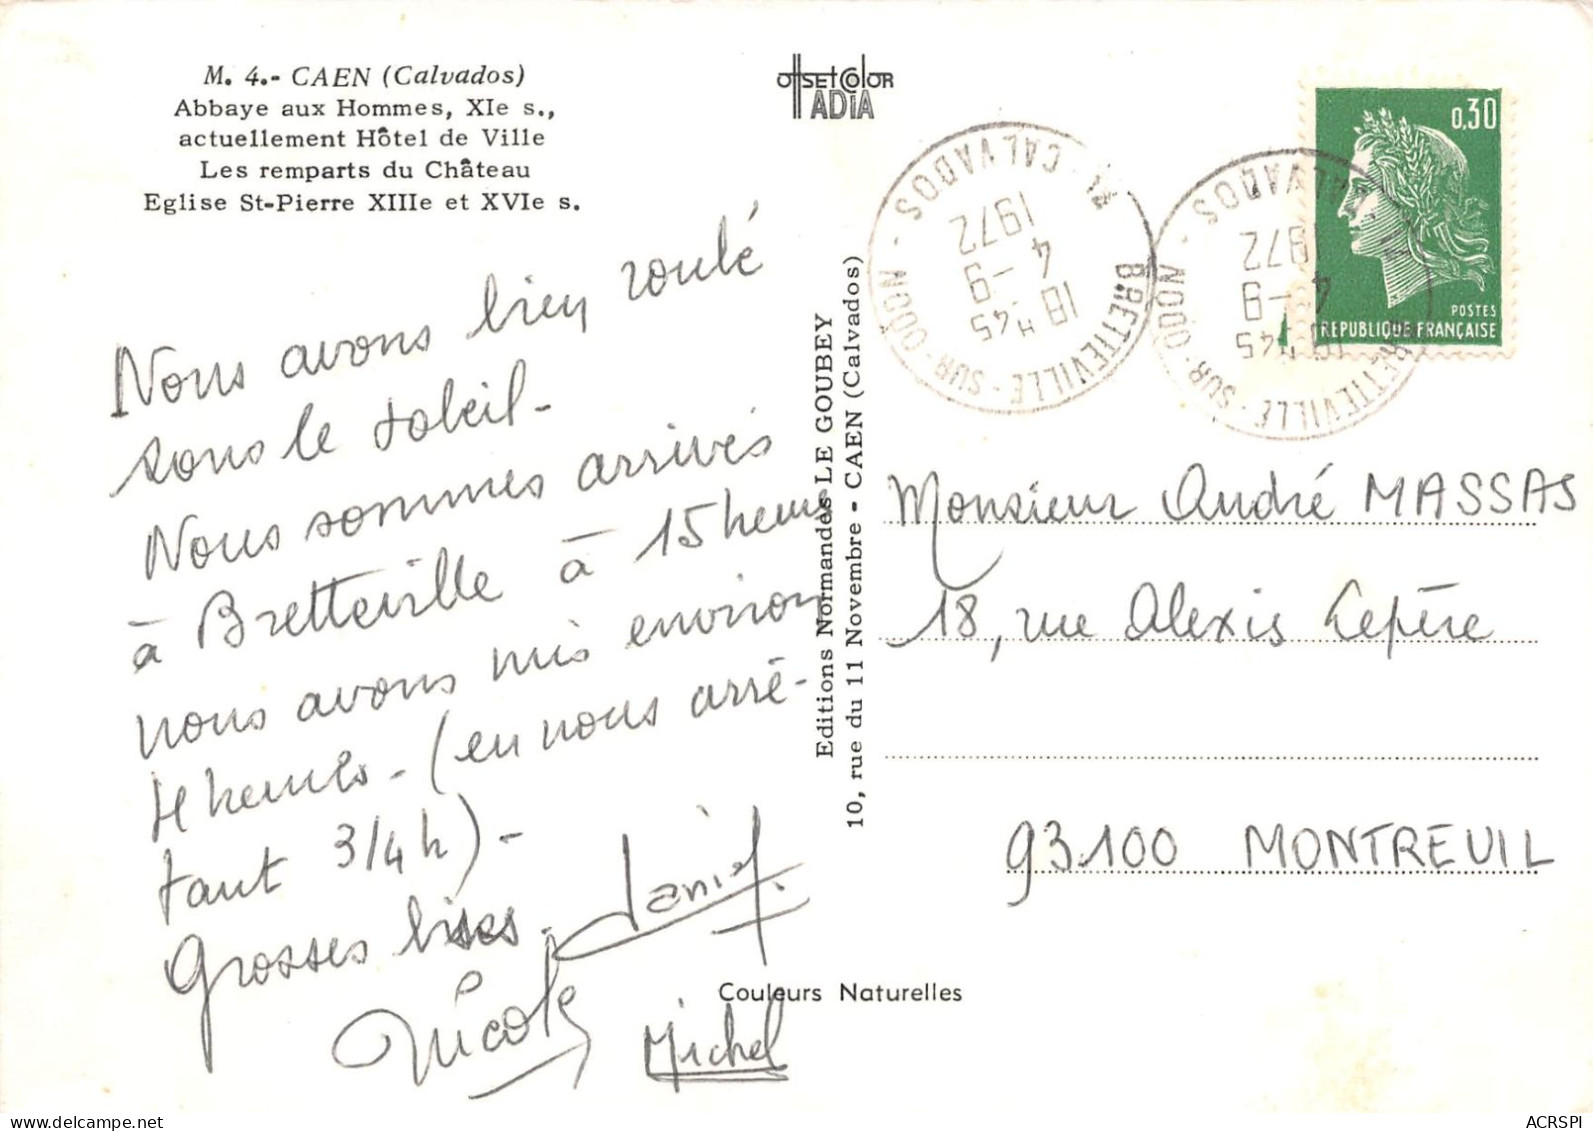 M. 4.- CAEN (Calvados)
Abbaye aux Hommes, XIe s.,
actuellement Hôtel de Ville
Les remparts du Château
Eglise St-Pierre XIIIe et XVIe s.
Nous avons bien roulé
sous le soleil-
Nous sommes arrivés
à Bretteville à 15 heures
nous avons mis environ
4 heures - (en nous arrê-
tant 3/4 h) -
Grosses bises.
Daniel
Nicole
Michel
OFFSET COLOR
ADIA
Editions Normandes LE GOUBEY
10, rue du 11 Novembre - CAEN (Calvados)
Couleurs Naturelles
BRETTEVILLE-SUR-ODON
CALVADOS
18H45
4-9
1972
BRETTEVILLE-SUR-ODON
CALVADOS
18H45
4-9
1972
0,30
POSTES
REPUBLIQUE FRANÇAISE
Monsieur André MASSAS
18, rue Alexis Lepère
93100 MONTREUIL
ACRSPI